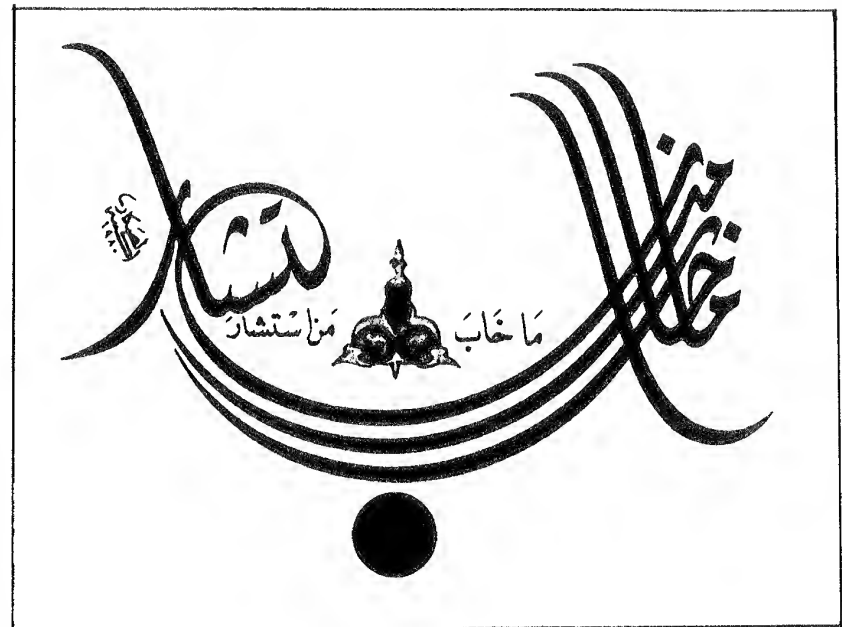 ما خاب من استشار
مَا خَابَ مَن اسْتشارَ